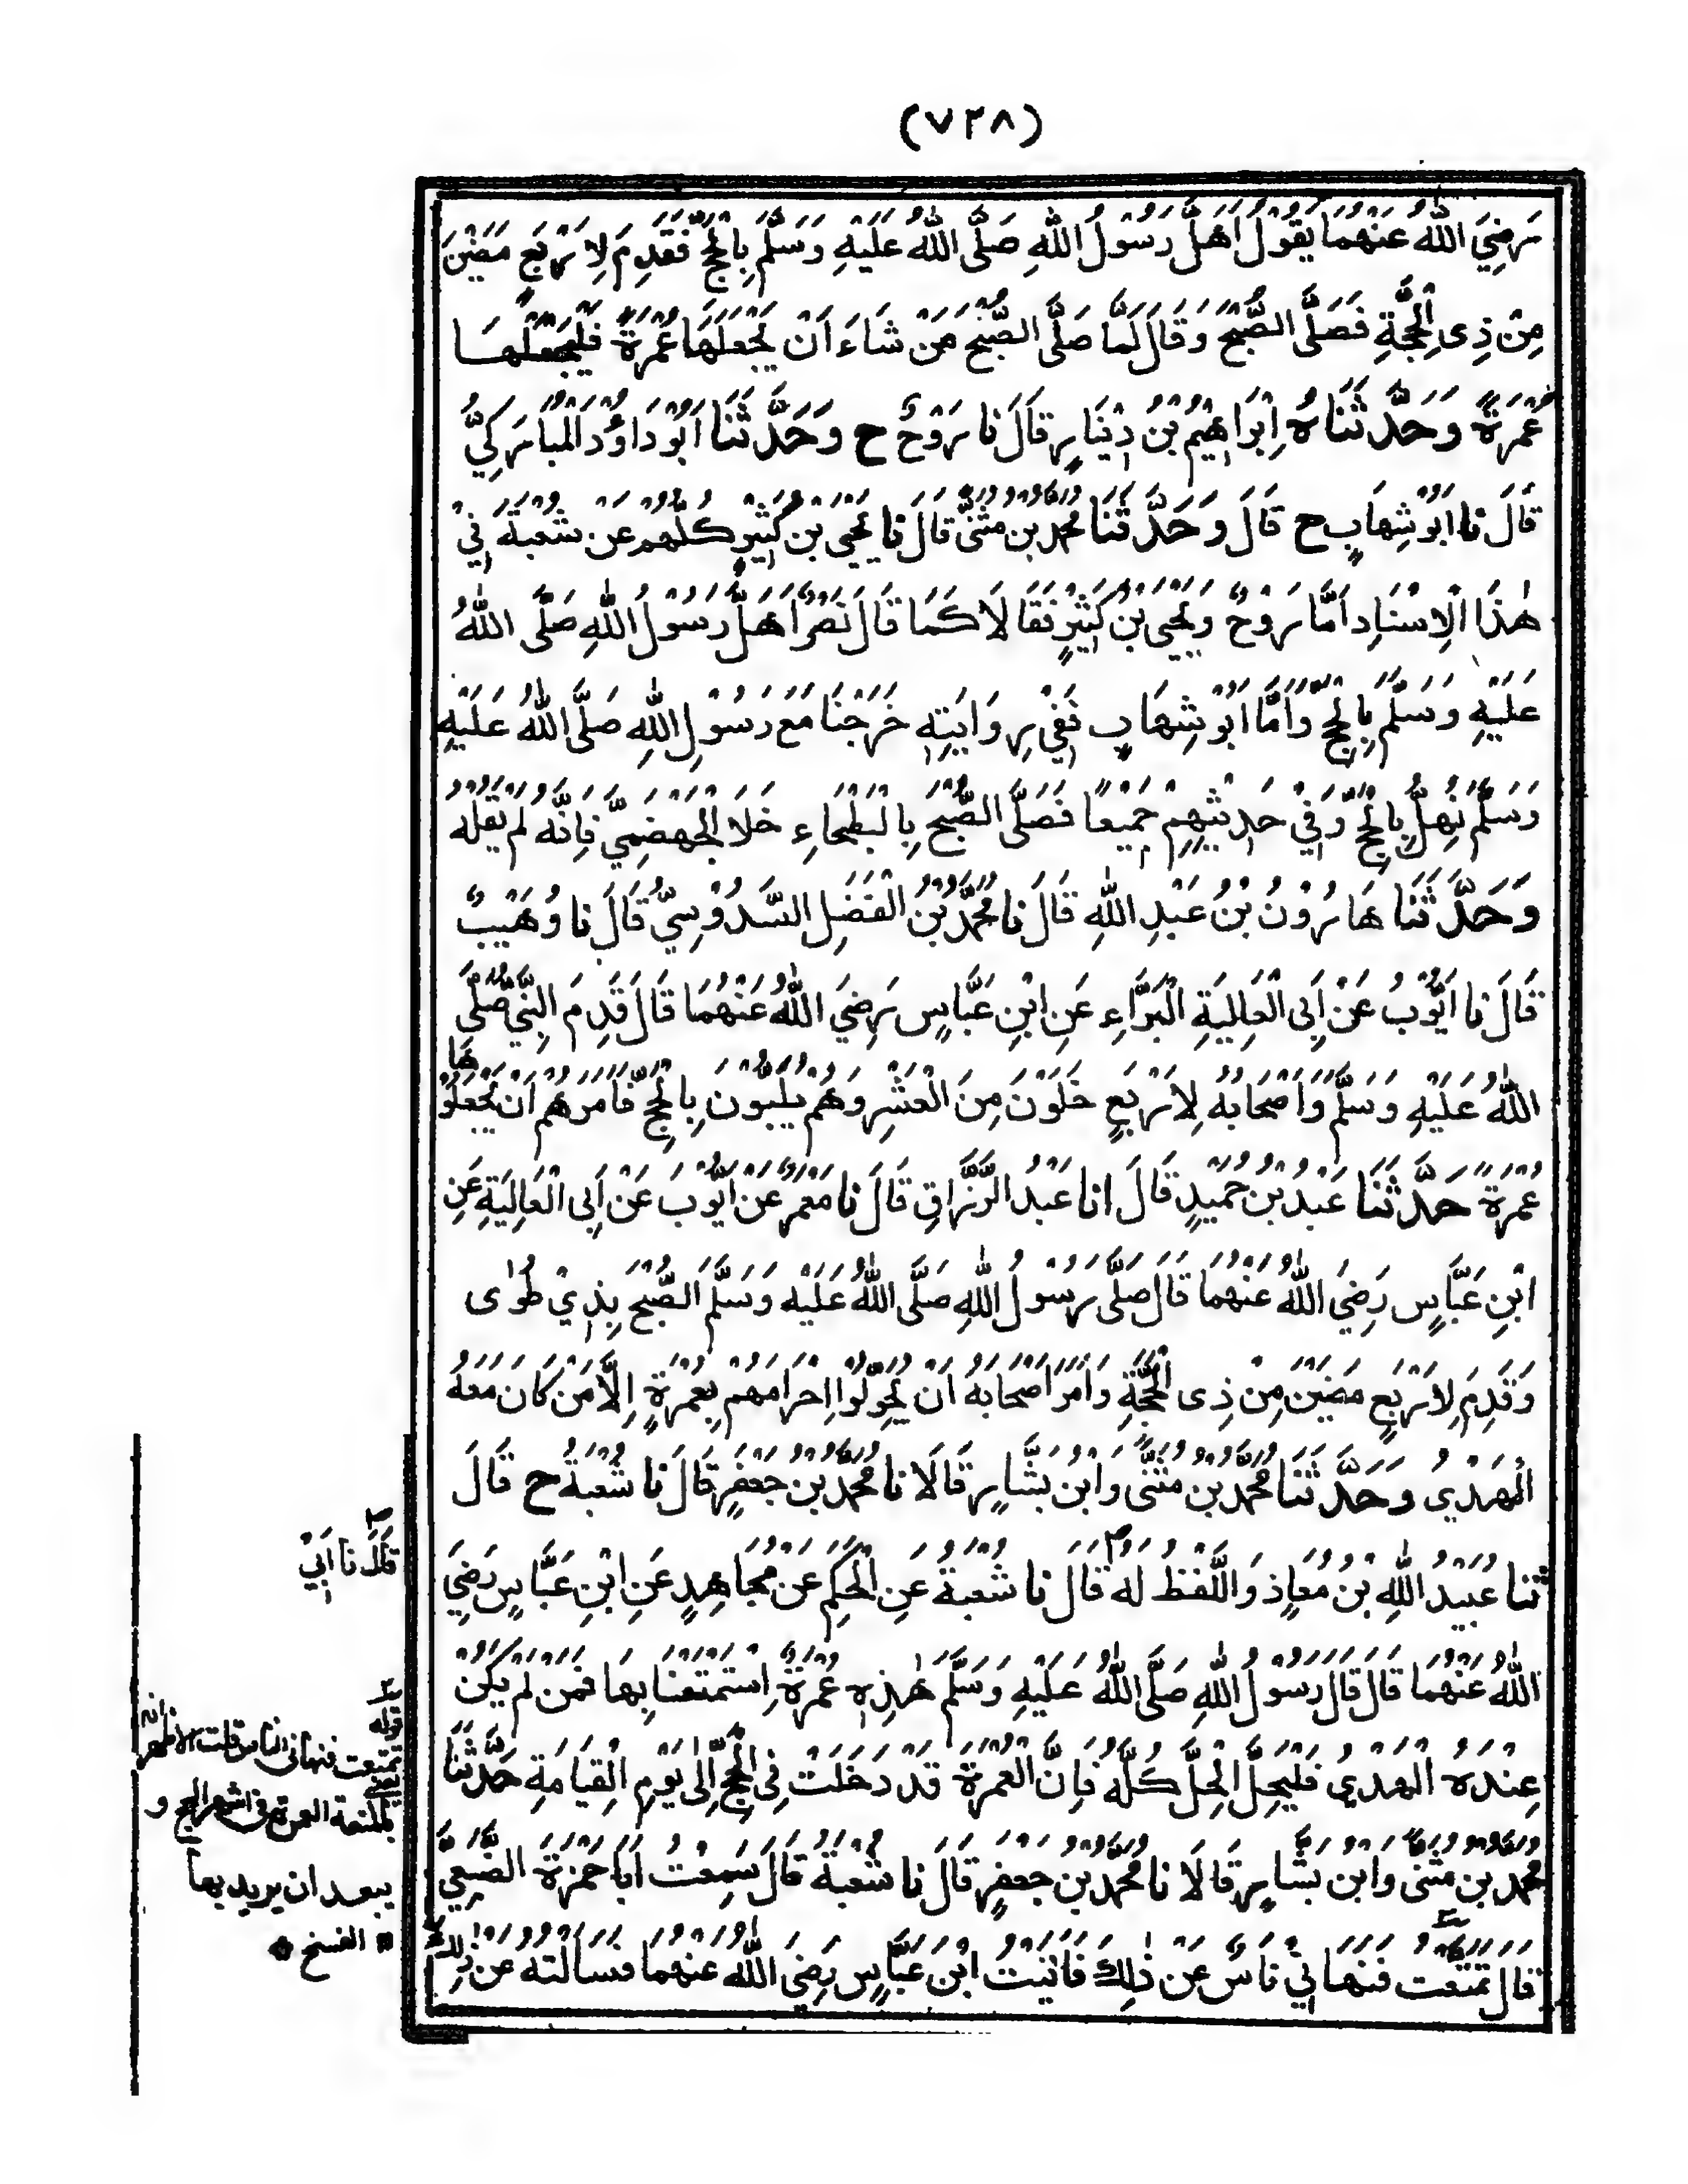 (٧٢٨)
رَضِيَ اللّٰهُ عَنْهُمَا يَقُوْلُ اَهَلَّ رَسُوْلُ اللّٰهِ صَلَّى اللّٰهُ عَلَيْهِ وَسَلَّمَ بِالْحَجِّ فَقَدِمَ لِاَرْبَعٍ مَضَيْنَ
مِنْ ذِى الْحِجَّةِ فَصَلَّى الصُّبْحَ وَقَالَ لَمَّا صَلَّى الصُّبْحَ مَنْ شَاءَ اَنْ يَّجْعَلَهَا عُمْرَةً فَلْيَجْعَلْهَا
عُمْرَةً وَحَدَّثَنَاهُ اِبْرَاهِيْمُ بْنُ دِيْنَارٍ قَالَ نَا رَوْحٌ ح وَحَدَّثَنَا اَبُوْ دَاوٗدَ الْمُبَارَكِيُّ
قَالَ نَا اَبُوْ شِهَابٍ ح قَالَ وَحَدَّثَنَا مُحَمَّدُ بْنُ مُثَنًّى قَالَ نَا يَحْيَى بْنُ كَثِيْرٍ كُلُّهُمْ عَنْ شُعْبَةَ فِيْ
هٰذَا الْاِسْنَادِ اَمَّا رَوْحٌ وَيَحْيَى بْنُ كَثِيْرٍ فَقَالَا كَمَا قَالَ نَصْرٌ اَهَلَّ رَسُوْلُ اللّٰهِ صَلَّى اللّٰهُ
عَلَيْهِ وَسَلَّمَ بِالْحَجِّ وَاَمَّا اَبُوْ شِهَابٍ فَفِيْ رِوَايَتِهٖ خَرَجْنَا مَعَ رَسُوْلِ اللّٰهِ صَلَّى اللّٰهُ عَلَيْهِ
وَسَلَّمَ نُهِلُّ بِالْحَجِّ وَفِيْ حَدِيْثِهِمْ جَمِيْعًا فَصَلَّى الصُّبْحَ بِالْبَطْحَاءِ خَلَا الْجَهْضَمِيَّ فَاِنَّهٗ لَمْ يَقُلْهُ
وَحَدَّثَنَا هَارُوْنُ بْنُ عَبْدِ اللّٰهِ قَالَ نَا مُحَمَّدُ بْنُ الْفَضْلِ السَّدُوْسِيُّ قَالَ نَا وُهَيْبٌ
قَالَ نَا اَيُّوْبُ عَنْ اَبِى الْعَالِيَةِ الْبَرَّاءِ عَنِ ابْنِ عَبَّاسٍ رَضِيَ اللّٰهُ عَنْهُمَا قَالَ قَدِمَ النَّبِيُّ صَلَّى
اللّٰهُ عَلَيْهِ وَسَلَّمَ وَاَصْحَابُهٗ لِاَرْبَعٍ خَلَوْنَ مِنَ الْعَشْرِ وَهُمْ يُلَبُّوْنَ بِالْحَجِّ فَاَمَرَهُمْ اَنْ يَّجْعَلُوْهَا
عُمْرَةً حَدَّثَنَا عَبْدُ بْنُ حُمَيْدٍ قَالَ انا عَبْدُ الرَّزَّاقِ قَالَ نَا مَعْمَرٌ عَنْ اَيُّوْبَ عَنْ اَبِى الْعَالِيَةِ عَنِ
ابْنِ عَبَّاسٍ رَضِيَ اللّٰهُ عَنْهُمَا قَالَ صَلَّى رَسُوْلُ اللّٰهِ صَلَّى اللّٰهُ عَلَيْهِ وَسَلَّمَ الصُّبْحَ بِذِيْ طُوٰى
وَقَدِمَ لِاَرْبَعٍ مَضَيْنَ مِنْ ذِى الْحِجَّةِ وَاَمَرَ اَصْحَابَهٗ اَنْ يُّحَوِّلُوْا اِحْرَامَهُمْ بِعُمْرَةٍ اِلَّا مَنْ كَانَ مَعَهُ
الْهَدْيُ وَحَدَّثَنَا مُحَمَّدُ بْنُ مُثَنًّى وَابْنُ بَشَّارٍ قَالَا نَا مُحَمَّدُ بْنُ جَعْفَرٍ قَالَ نَا شُعْبَةُ ح قَالَ
ثنا عُبَيْدُ اللّٰهِ بْنُ مُعَاذٍ وَاللَّفْظُ لَهٗ قَالَ نَا شُعْبَةُ عَنِ الْحَكَمِ عَنْ مُجَاهِدٍ عَنِ ابْنِ عَبَّاسٍ رَضِيَ
اللّٰهُ عَنْهُمَا قَالَ قَالَ رَسُوْلُ اللّٰهِ صَلَّى اللّٰهُ عَلَيْهِ وَسَلَّمَ هٰذِهٖ عُمْرَةٌ اِسْتَمْتَعْنَا بِهَا فَمَنْ لَّمْ يَكُنْ
عِنْدَهُ الْهَدْيُ فَلْيَحِلَّ الْحِلَّ كُلَّهٗ فَاِنَّ الْعُمْرَةَ قَدْ دَخَلَتْ فِى الْحَجِّ اِلٰى يَوْمِ الْقِيَامَةِ حَدَّثَنَا
مُحَمَّدُ بْنُ مُثَنًّى وَابْنُ بَشَّارٍ قَالَا نَا مُحَمَّدُ بْنُ جَعْفَرٍ قَالَ نَا شُعْبَةُ قَالَ سَمِعْتُ اَبَا حَمْزَةَ الضُّبَعِيَّ
قَالَ تَمَتَّعْتُ فَنَهَانِيْ نَاسٌ عَنْ ذٰلِكَ فَاَتَيْتُ ابْنَ عَبَّاسٍ رَضِيَ اللّٰهُ عَنْهُمَا فَسَاَلْتُهٗ عَنْ ذٰلِكَ
قَالَ نَا اَبِيْ
قوله
تمتعت فنهانى الناس قلت الاظهر انه يعنى
بالمتعة العمرة فى اشهر الحج و
يبعد ان يريد بها
الفسخ